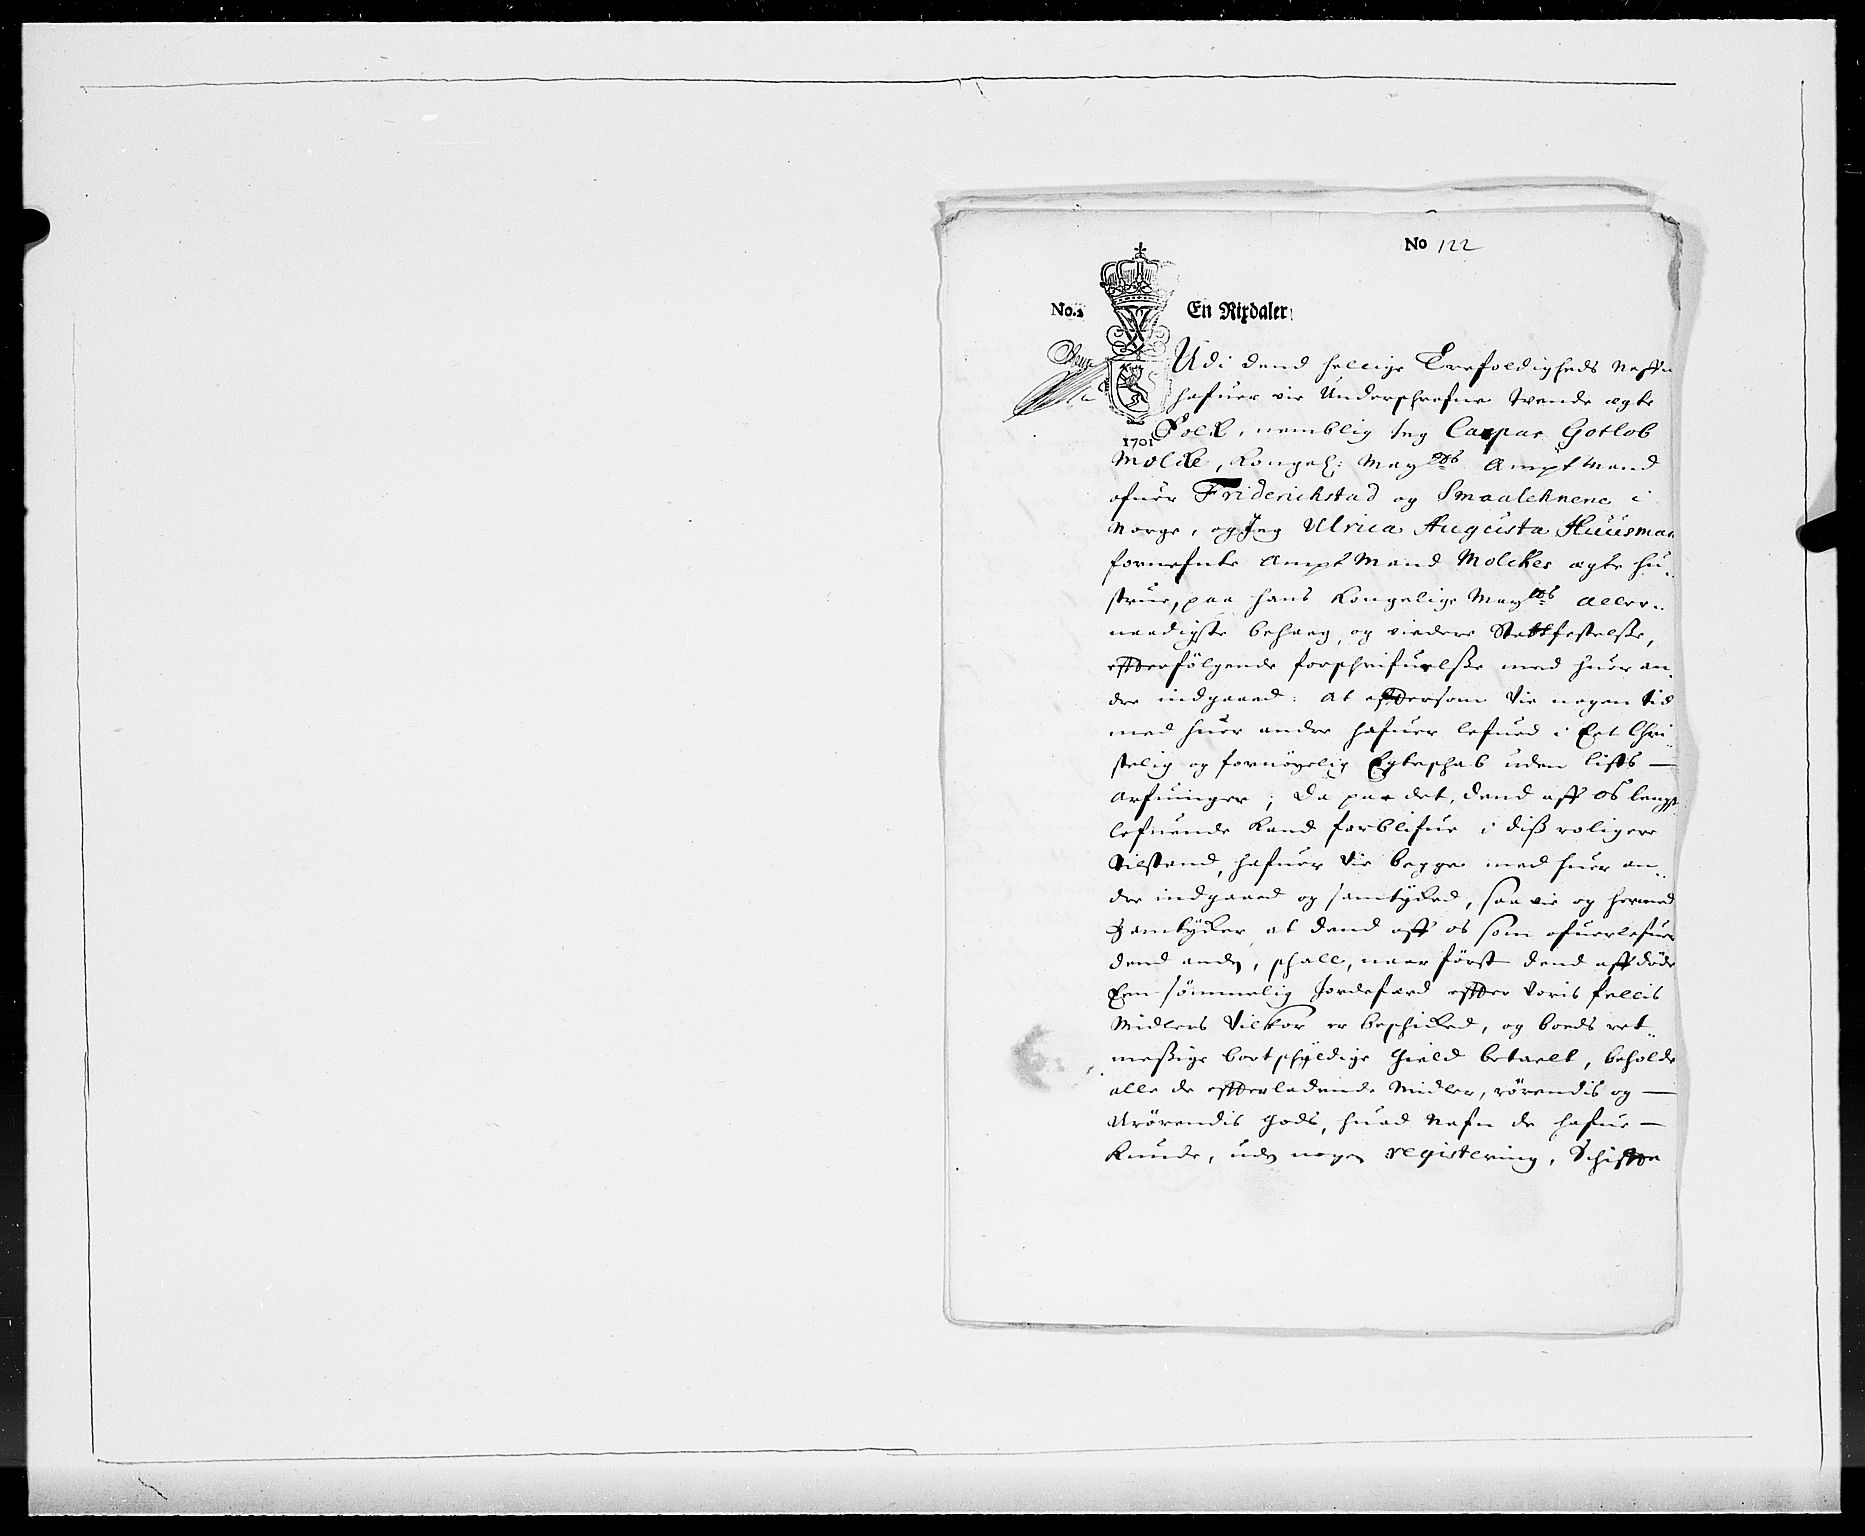 No 122
No. 2 En Rixdaler.
1701
Udi dend hellige Trefoldigheds Naffn
hafuer vie Underschrefne tvende ægte
Folk, nemblig Jeg Caspar Gotlob
Molcke, Kongel: May:tts AmptMand
ofuer Friderichstad og Smaalehnene i
Norge, og Jeg Ulrica Augusta Huusman
fornefnte AmptMand Molckes ægte hu-
strue, paa hans Kongelige May:tts aller-
naadigste behaug, og viedere Stadfestelsse,
effterfölgende forschrifuelsse med huer an-
dre indgaaed: At effttersom Vie nogen tid
med huer andre hafuer lefued i Eet Chri-
stelig og fornöyelig Egteschab uden lifs
arfuinger; Da paa det, dend aff os lengst
lefuende kand forblifue i diß roligere
tilstand, hafuer Vie begge med huer an-
dre indgaaed og samtyked, saa vie og hermed
Samtyker at dend aff os som ofuerlefuer
dend anden, schall, naar först dend aff döde
Een sömmelig Jordefærd effter voris fellis
Midlers Vilkor er beschicked, og boeds ret-
meßige bortschyldige gield betaelt, beholde
alle de effterladende Midler, rörendis og
Urörendis gods, huad Nafn de hafue
kunde, uden nogen registering, Schiffte